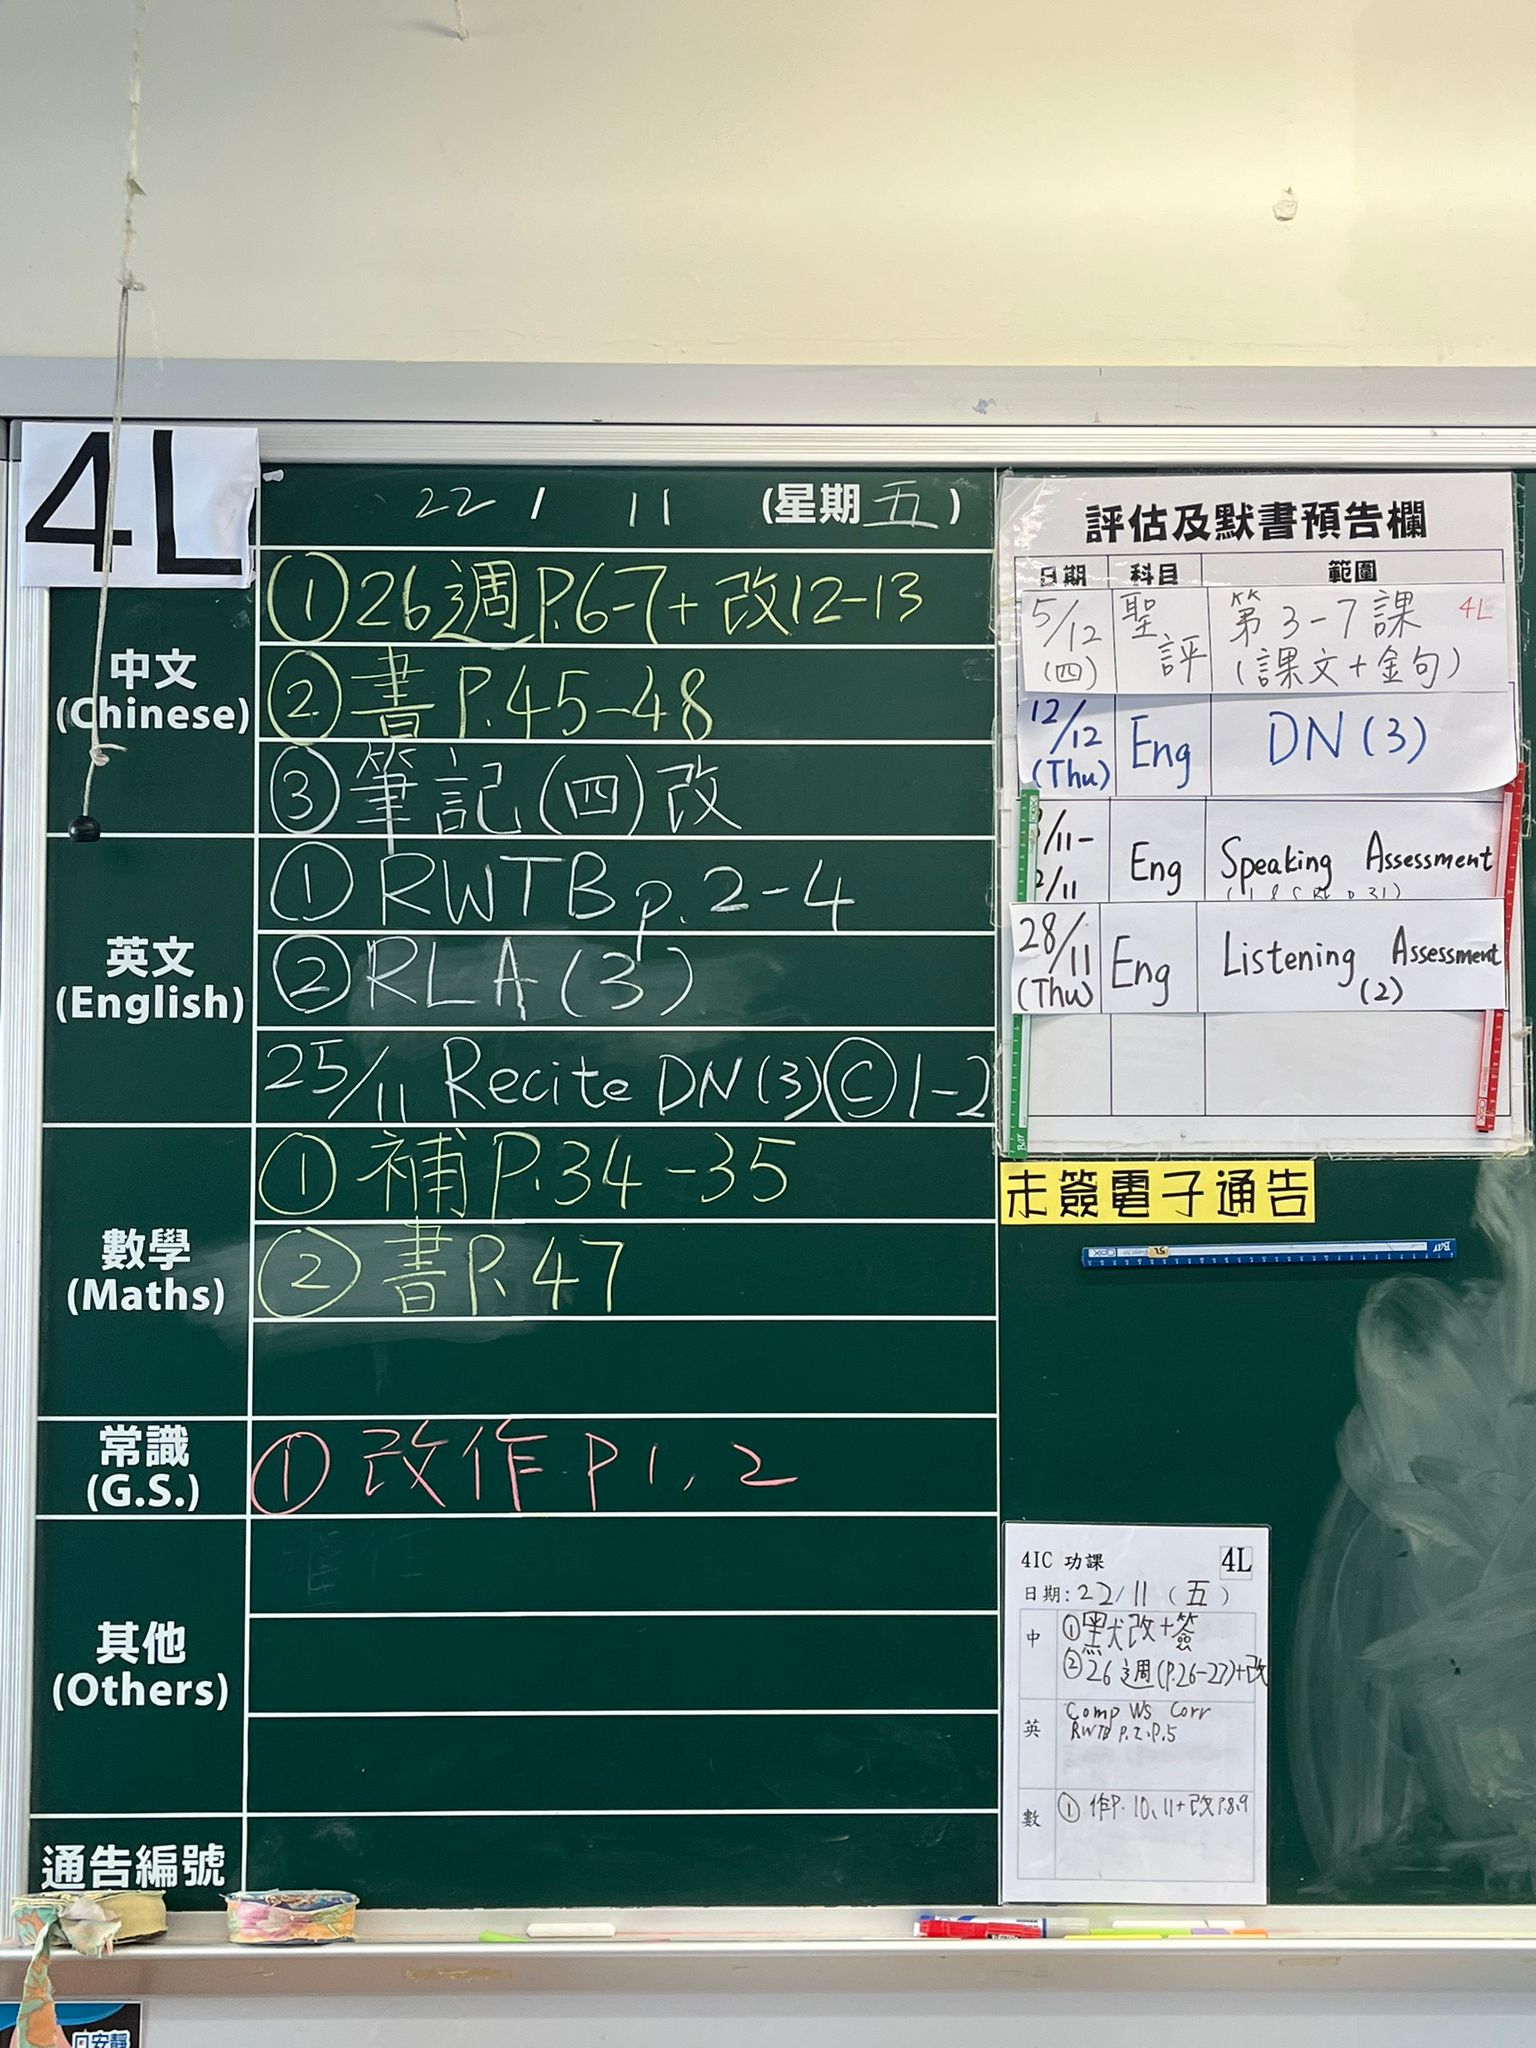 4L
22 / 11 (星期五)
中文
(Chinese)
① 26週P.6-7+改12-13
② 書 P.45-48
③ 筆記(四)改
英文
(English)
① RWTB p.2-4
② RLA(3)
25/11 Recite DN(3)Ⓒ1-2
數學
(Maths)
① 補 P.34-35
② 書P.47
常識
(G.S.)
① 改作 P1、2
其他
(Others)
通告編號
評估及默書預告欄
日期 科目 範圍
5/12 (四) 聖評 第3-7課 4L
(課文+金句)
12/12 (Thu) Eng DN(3)
/11- /11 Eng Speaking Assessment
28/11 (Thu) Eng Listening Assessment
(2)
未簽電子通告
4IC 功課 4L
日期: 22/11 (五)
中 ①默改+簽
②26週(P.26-27)+改
英 Comp Ws Corr
RWTB P.2,P.5
數 ① 作P. 10、11+改P.8,9
安靜